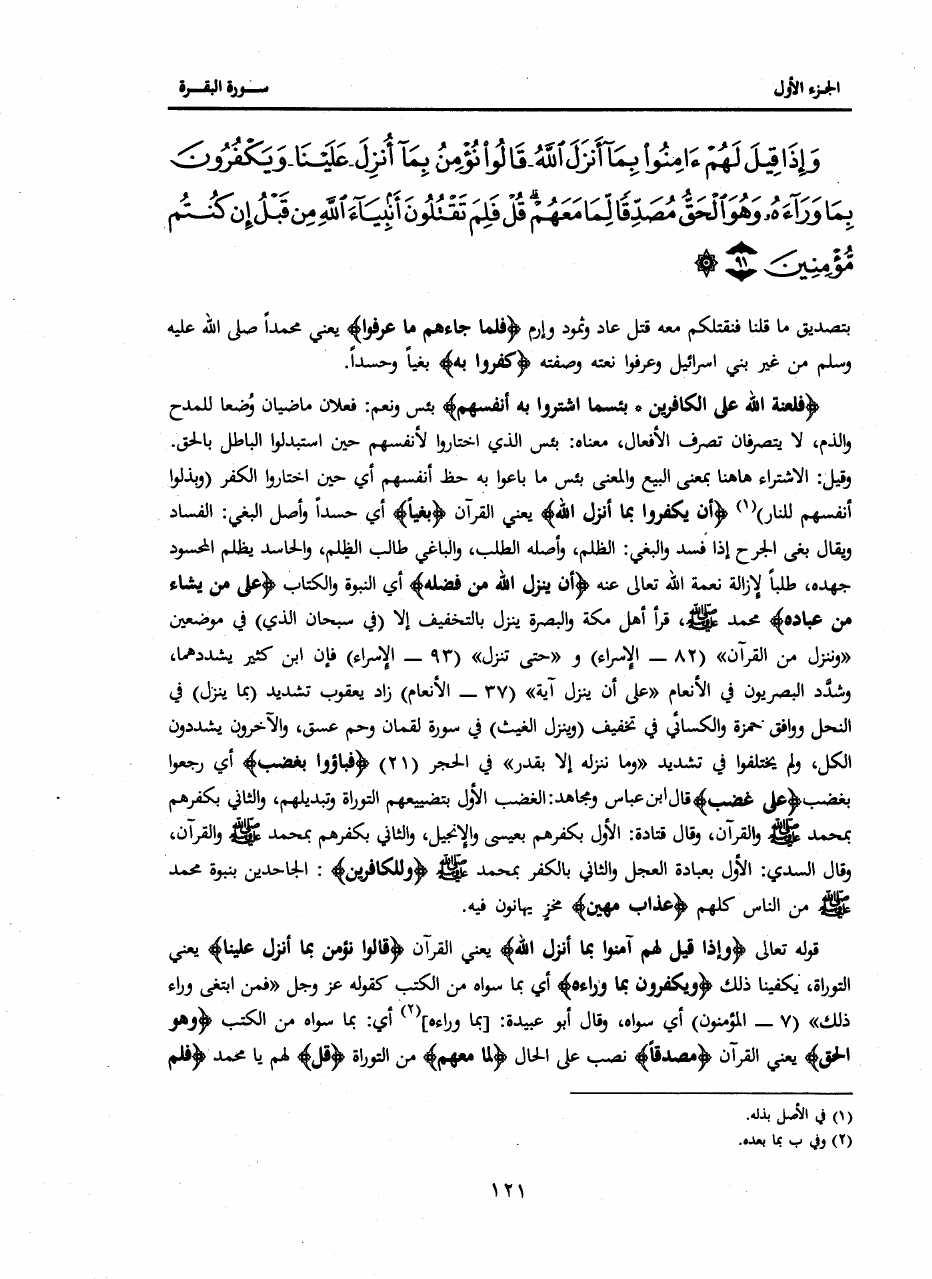 الجزء الأول
سورة البقرة
وَإِذَا قِيلَ لَهُمْ ءَامِنُوا۟ بِمَآ أَنزَلَ ٱللَّهُ قَالُوا۟ نُؤْمِنُ بِمَآ أُنزِلَ عَلَيْنَا وَيَكْفُرُونَ
بِمَا وَرَآءَهُۥ وَهُوَ ٱلْحَقُّ مُصَدِّقًا لِّمَا مَعَهُمْ ۗ قُلْ فَلِمَ تَقْتُلُونَ أَنۢبِيَآءَ ٱللَّهِ مِن قَبْلُ إِن كُنتُم
مُّؤْمِنِينَ ﴿٩١﴾ ۞
بتصديق ما قلنا فنقتلكم معه قتل عاد وثمود وإرم ﴿فلما جاءهم ما عرفوا﴾ يعني محمداً صلى الله عليه
وسلم من غير بني اسرائيل وعرفوا نعته وصفته ﴿كفروا به﴾ بغياً وحسداً.
﴿فلعنة الله على الكافرين * بئسما اشتروا به أنفسهم﴾ بئس ونعم: فعلان ماضيان وُضعا للمدح
والذم، لا يتصرفان تصرف الأفعال، معناه: بئس الذي اختاروا لأنفسهم حين استبدلوا الباطل بالحق.
وقيل: الاشتراء هاهنا بمعنى البيع والمعنى بئس ما باعوا به حظ أنفسهم أي حين اختاروا الكفر (وبذلوا
أنفسهم للنار)(١) ﴿أن يكفروا بما أنزل الله﴾ يعني القرآن ﴿بغياً﴾ أي حسداً وأصل البغي: الفساد
ويقال بغى الجرح إذا فسد والبغي: الظلم، وأصله الطلب، والباغي طالب الظلم، والحاسد يظلم المحسود
جهده، طلباً لإزالة نعمة الله تعالى عنه ﴿أن ينزل الله من فضله﴾ أي النبوة والكتاب ﴿على من يشاء
من عباده﴾ محمد ﷺ، قرأ أهل مكة والبصرة ينزل بالتخفيف إلا (في سبحان الذي) في موضعين
«وننزل من القرآن» (٨٢ ــ الإسراء) و «حتى تنزل» (٩٣ ــ الإسراء) فإن ابن كثير يشددهما،
وشدَّد البصريون في الأنعام «على أن ينزل آية» (٣٧ ــ الأنعام) زاد يعقوب تشديد (بما ينزل) في
النحل ووافق حمزة والكسائي في تخفيف (وينزل الغيث) في سورة لقمان وحم عسق، والآخرون يشددون
الكل، ولم يختلفوا في تشديد «وما ننزله إلا بقدر» في الحجر (٢١) ﴿فباؤوا بغضب﴾ أي رجعوا
بغضب ﴿على غضب﴾ قال ابن عباس ومجاهد: الغضب الأول بتضييعهم التوراة وتبديلهم، والثاني بكفرهم
بمحمد ﷺ والقرآن، وقال قتادة: الأول بكفرهم بعيسى والإنجيل، والثاني بكفرهم بمحمد ﷺ والقرآن،
وقال السدي: الأول بعبادة العجل والثاني بالكفر بمحمد ﷺ ﴿وللكافرين﴾ : الجاحدين بنبوة محمد
ﷺ من الناس كلهم ﴿عذاب مهين﴾ مخزٍ يهانون فيه.
قوله تعالى ﴿وإذا قيل لهم آمنوا بما أنزل الله﴾ يعني القرآن ﴿قالوا نؤمن بما أنزل علينا﴾ يعني
التوراة، يكفينا ذلك ﴿ويكفرون بما وراءه﴾ أي بما سواه من الكتب كقوله عز وجل «فمن ابتغى وراء
ذلك» (٧ ــ المؤمنون) أي سواه، وقال أبو عبيدة: [بما وراءه](٢) أي: بما سواه من الكتب ﴿وهو
الحق﴾ يعني القرآن ﴿مصدقاً﴾ نصب على الحال ﴿لما معهم﴾ من التوراة ﴿قل﴾ لهم يا محمد ﴿فلم
(١) في الأصل بذله.
(٢) وفي ب بما بعده.
١٢١